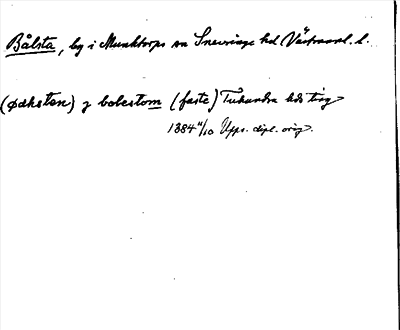 Bålsta, by i Munktorps sn Snevringe hd Västmanl. l.
(ødksten) j bolestom (faste) Tuhundra hds ting
1384 11/10 Upps. dipl. orig.